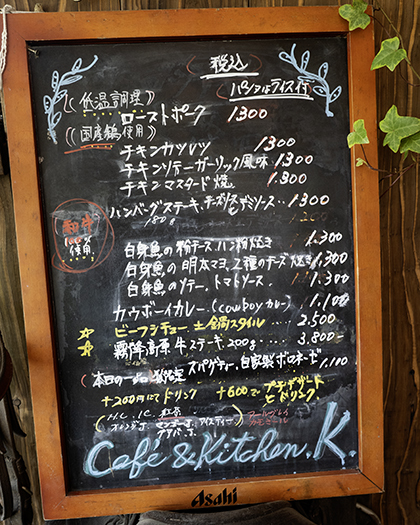 税込
パン又はライス付
((低温調理))
ローストポーク 1300
((国産鶏使用))
チキンカツレツ 1300
チキンソテーガーリック風味 1300
チキンマスタード焼 1.300
ハンバーグステーキ、チーズ デミソース‥1300
180g
使用
白身魚の粉チーズ、パン粉焼き 1.300
白身魚の明太マヨ、2種のチーズ焼き 1.300
白身魚のソテー、トマトソース 1.300
カウボーイカレー、(cowboyカレー) 1.100
☆ビーフシチュー 土鍋スタイル‥‥ 2.500
☆霧降高原牛ステーキ 200g‥‥ 3.800
(本日の一品 スパゲティー、自家製ボロネーゼ 1.100
+200円にてドリンク +600で プチデザート
とドリンク
(H.C. I.C. 紅茶
オレンジJ. マンゴーJ. アイスティー)
グアバJ.
アールグレイ
カモミール
Cafe & Kitchen. K.
Asahi